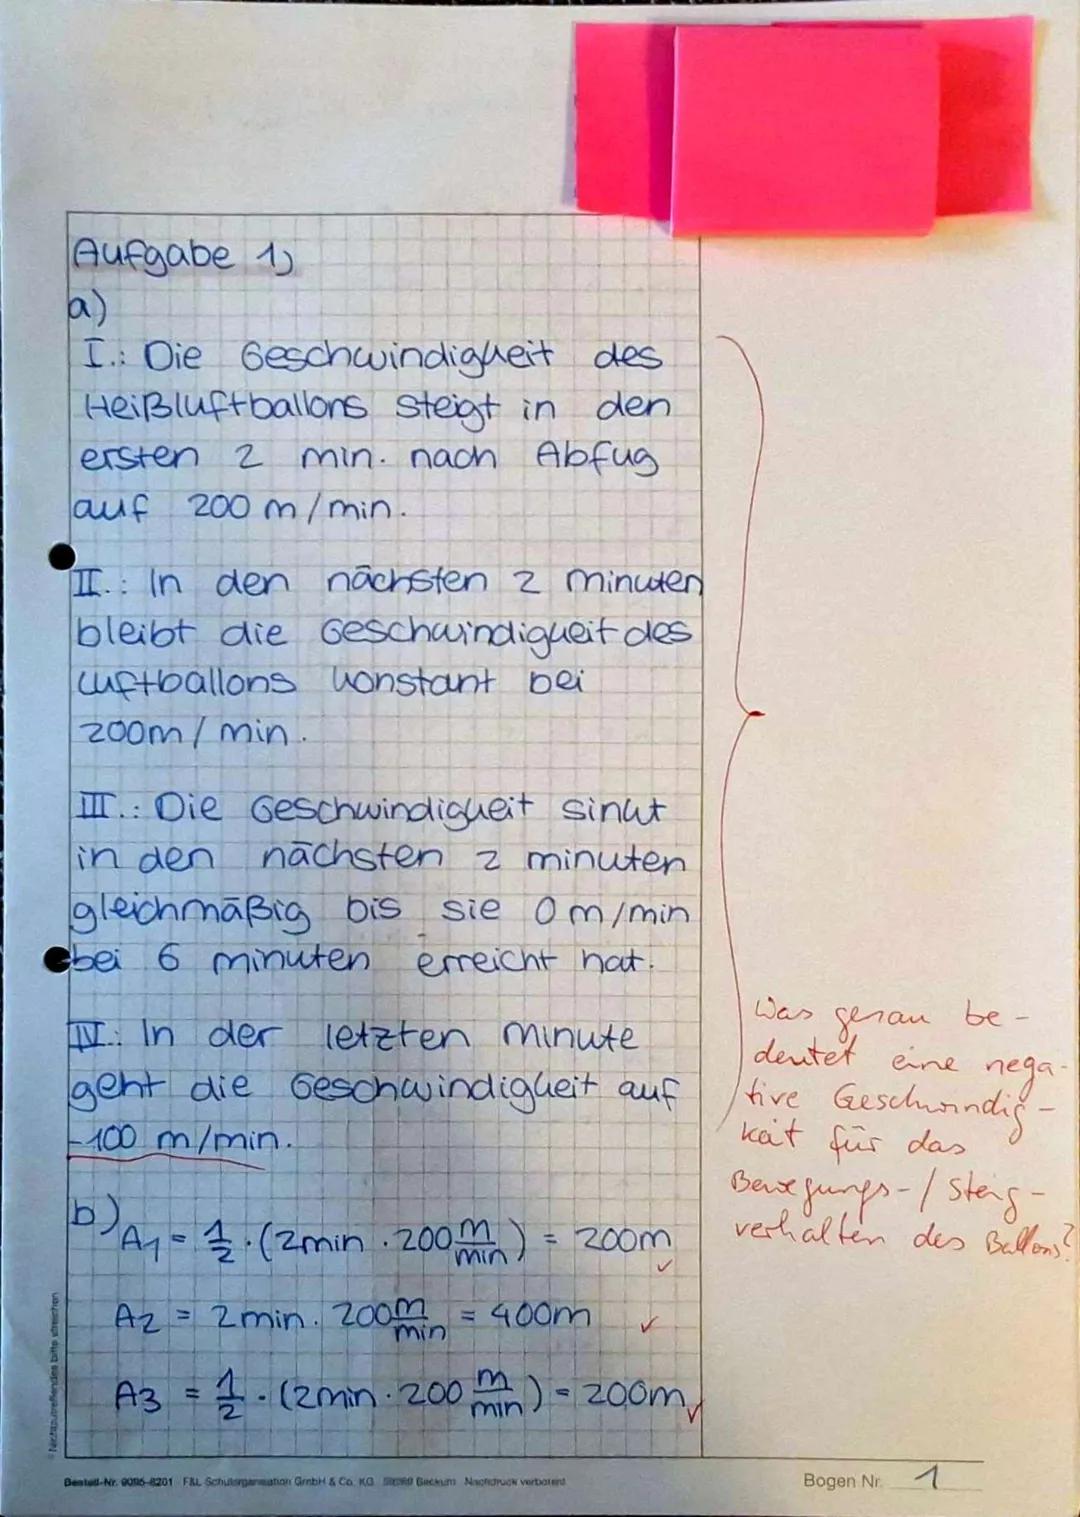 Aufgabe 1)
a)
I.: Die Geschwindigkeit des
Heißluftballons steigt in den
ersten 2 min. nach Abfug
auf 200 m/min.
II.: In den nächsten 2 minuten
bleibt die Geschwindigkeit des
Luftballons konstant bei
200m/min.
III.: Die Geschwindigkeit sinkt
in den nächsten 2 minuten
gleichmäßig bis sie 0m/min
bei 6 minuten erreicht hat.
IV.: In der letzten minute
geht die Geschwindigkeit auf
-100 m/min.
Was genau be-
deutet eine nega-
tive Geschwindig-
keit für das
Bewegungs-/Steig-
verhalten des Ballons?
b) A1 = 1/2 · (2min · 200 m/min) = 200m ✓
A2 = 2min · 200 m/min = 400m ✓
A3 = 1/2 · (2min · 200 m/min) = 200m ✓
Nichtzutreffendes bitte streichen
Bestell-Nr. 9095-8201 F&L Schulorganisation GmbH & Co. KG 59269 Beckum Nachdruck verboten!
Bogen Nr. 1